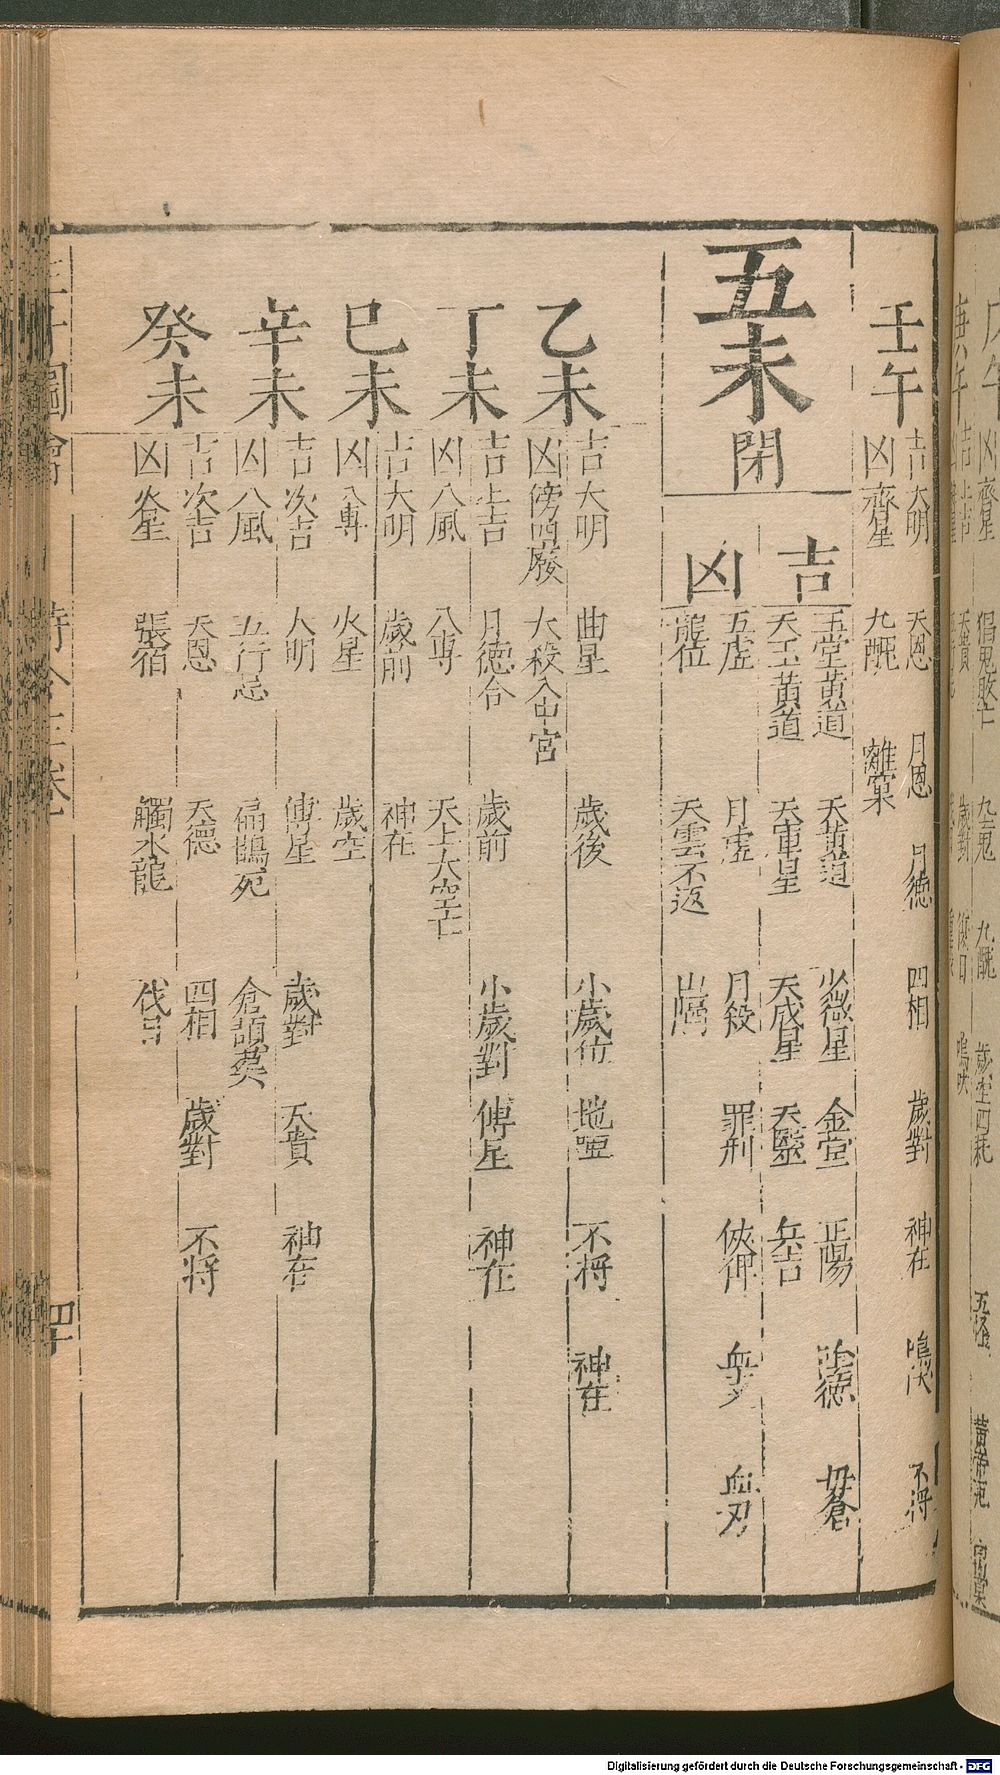 壬午
吉 大明 天恩 月恩 月德 四相 歲對 神在 鳴吠 不將
凶 齊星 九醜 離窠
五未閉
吉
玉堂黃道 天黃道 少微星 金堂 正陽 陰德 母倉
天玉黃道 天車星 天成星 天醫 兵吉
凶
五虛 月虛 月殺 罪刑 血刃
龍位 天雲不返
乙未
吉 大明 曲星 歲後 小歲位 地啞 不將 神在
凶 傍四廢 大殺入中宮
丁未
吉 上吉 月德合 歲前 小歲對 傅星 神在
凶 八風 八專 天上大空亡
巳未
吉 大明 歲前 神在
凶 八專 火星 歲空
辛未
吉 次吉 人明 傅星 歲對 天貴 神在
凶 八風 五行忌 扁鵲死 倉頡葬
癸未
吉 次吉 天恩 天德 四相 歲對 不將
凶 火星 張宿 觸水龍 伐日
三才圖會
時令三卷
四十
Digitalisierung gefördert durch die Deutsche Forschungsgemeinschaft - DFG